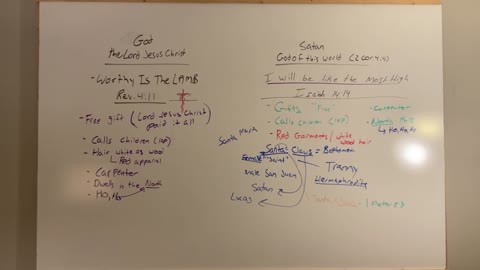 God
the Lord Jesus Christ
- Worthy Is The LAMB
Rev. 4:11
- Free gift (Lord Jesus Christ
paid it all
- Calls children (
- Hair white as wool
↳ Red apparel
- Carpenter
- Dwell in the North
- Ho, Ho
Satan
God of this world (2 Cor 4:4)
I will be like the Most High
Isaiah 14:14
- Gifts "Free"
- Calls children (
- Red Garments / white
wool hair
- Carpenter
- North Pole
↳ Ho, Ho, Ho
Santa Maria
Santa Claus =
Female "Saint"
male San Juan
Tranny
Hermaphrodite
Satan
Lucas
Santa Claus